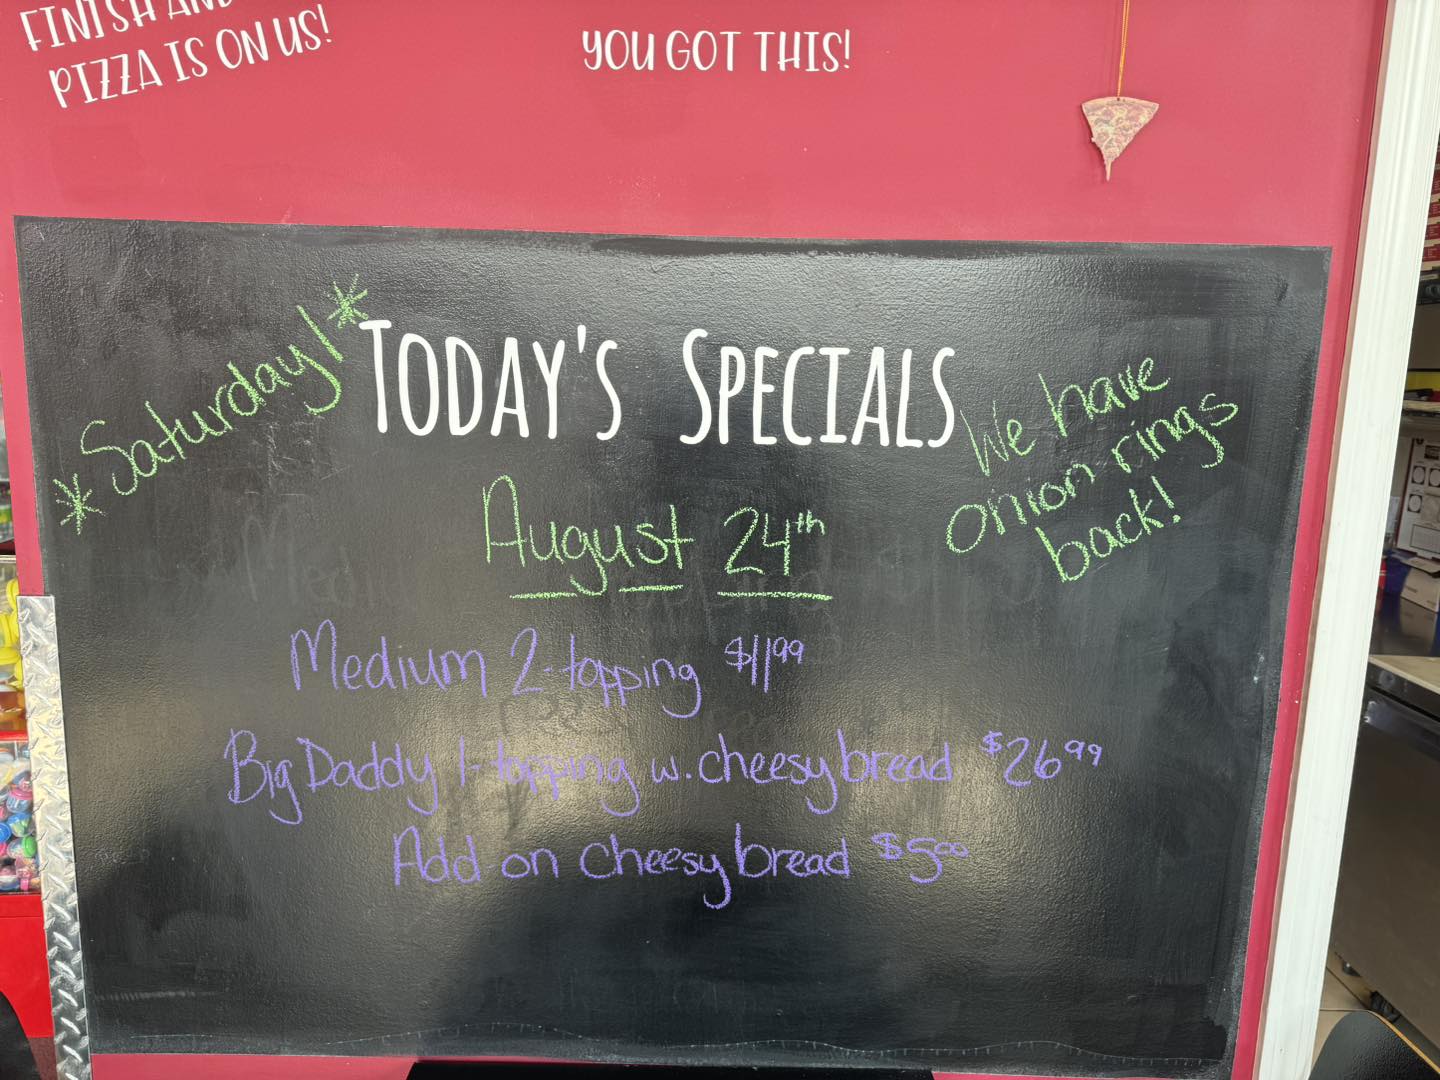 FINISH AND
PIZZA IS ON US!
YOU GOT THIS!
*Saturday!*
TODAY'S SPECIALS
We have
onion rings
back!
August 24th
Medium 2-topping $11.99
Big Daddy 1-topping w. cheesy bread $26.99
Add on cheesy bread $5.00